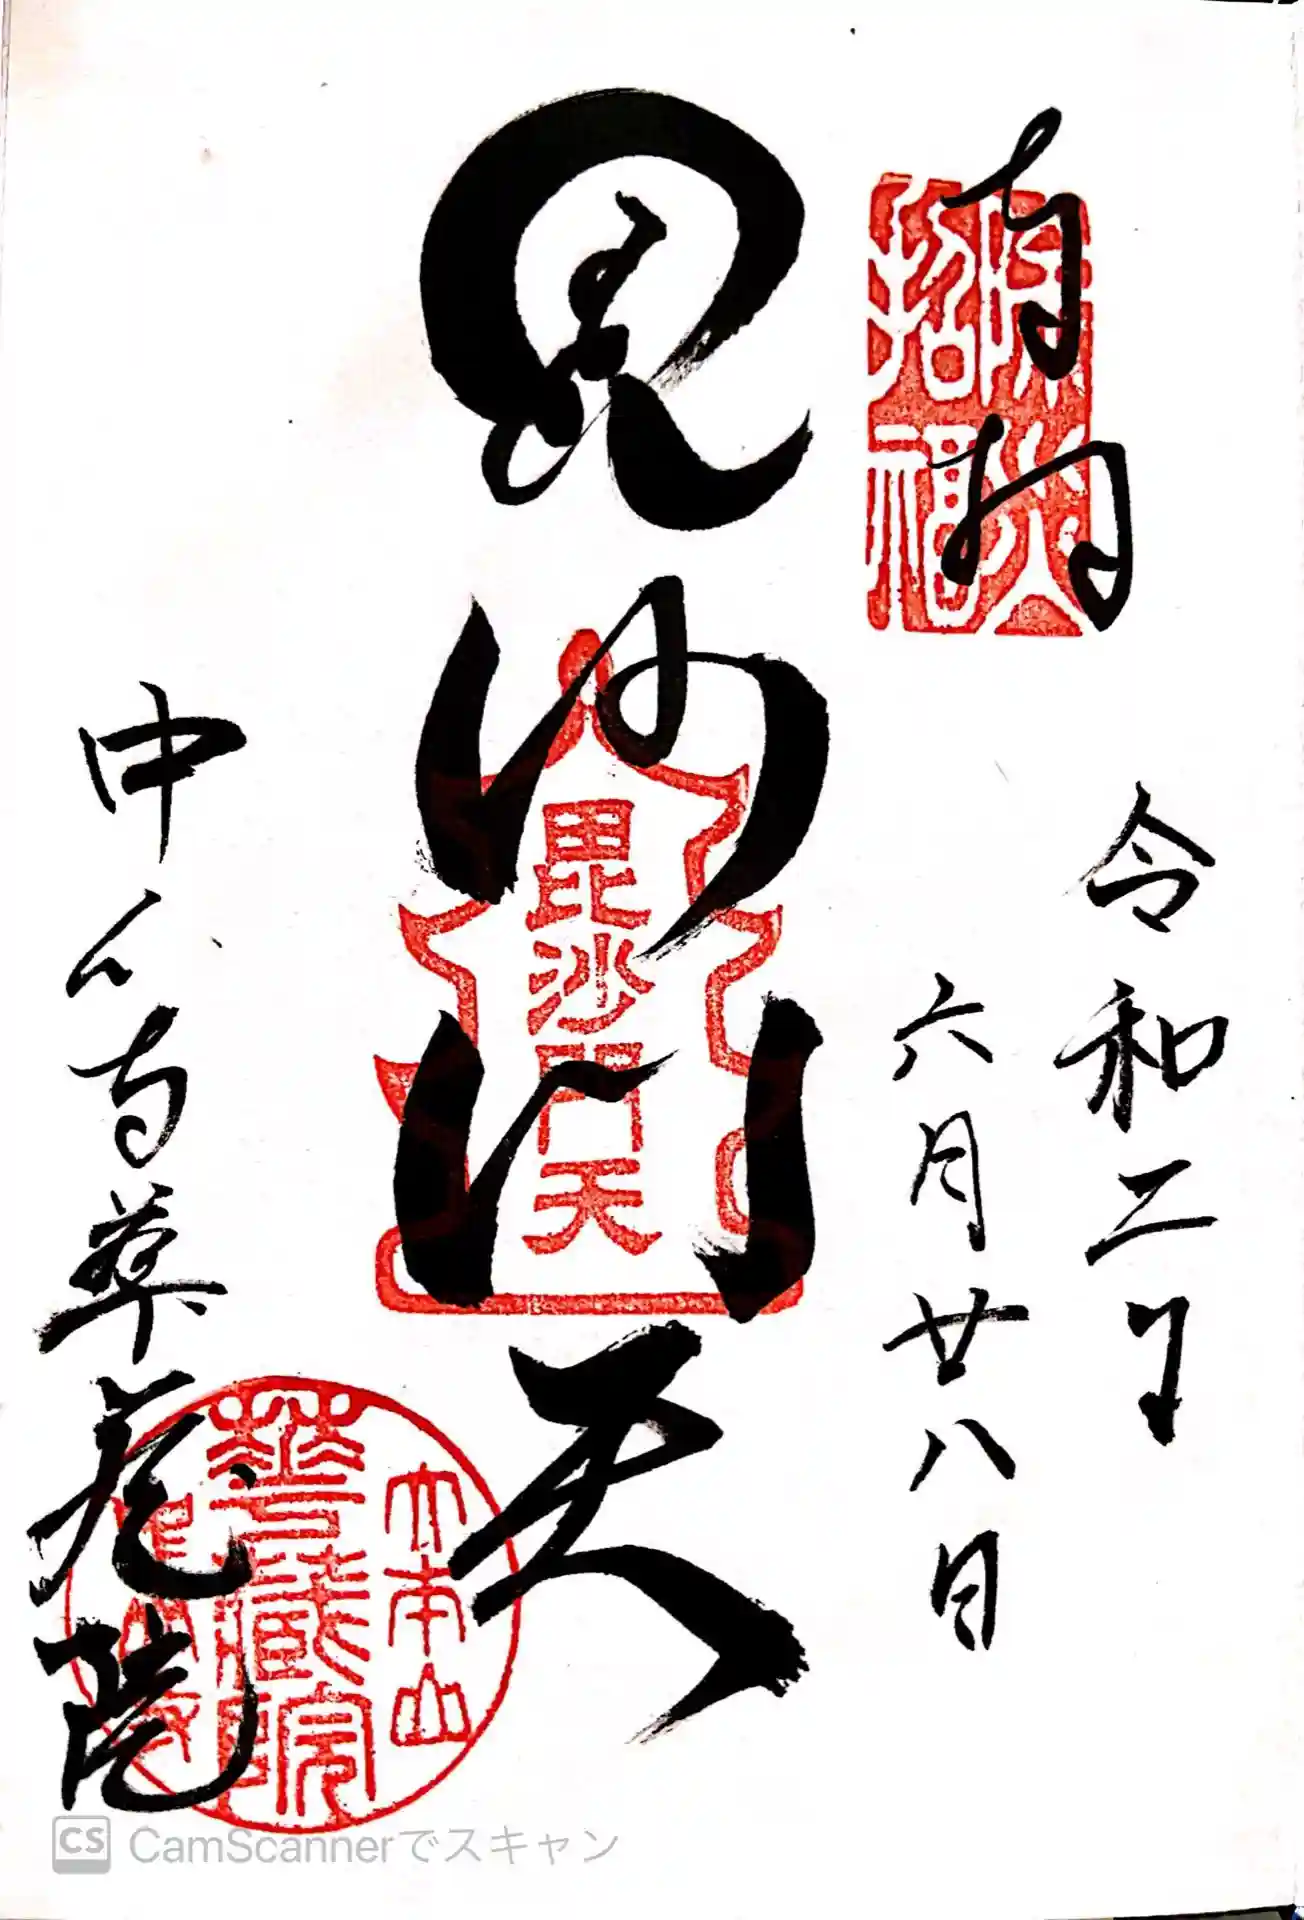 奉拝
除災
招福
令和二年
六月廿八日
毘沙門天
毘沙門天
中山寺華蔵院
大本山
華蔵院
CS CamScannerでスキャン